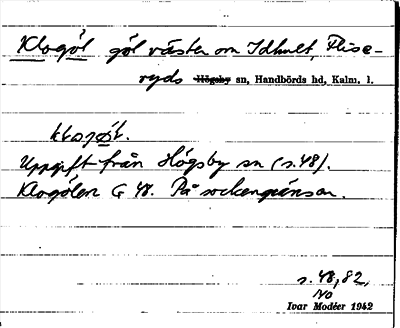 Klogöl göl väster om Idhult, Flise-
ryds Högsby sn, Handbörds hd, Kalm. l.
Uppgift från Högsby sn (s. 48).
Klogölen G 48. På sockengränsen.
s. 48, 82,
No
Ivar Modéer 1942